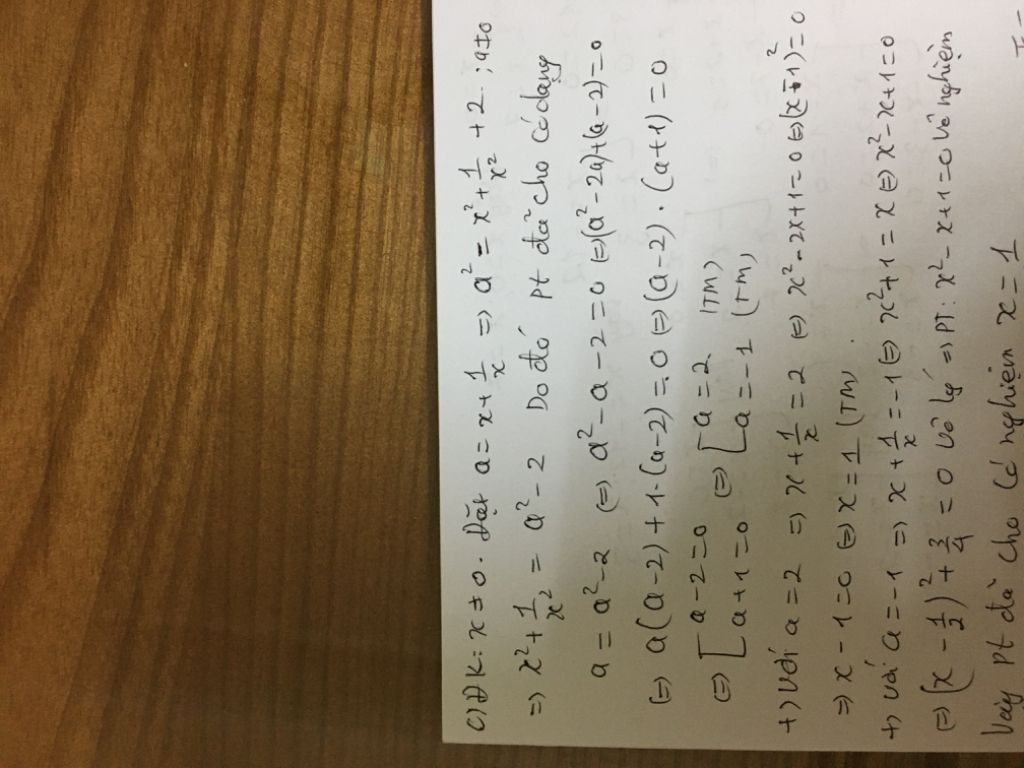 c) ĐK: x ≠ 0. Đặt a = x + 1/x => a² = x² + 1/x² + 2 ; a ≠ 0
=> x² + 1/x² = a² - 2 Do đó pt đã cho có dạng
a = a² - 2 (=) a² - a - 2 = 0 (=) (a² - 2a) + (a - 2) = 0
(=) a(a - 2) + 1·(a - 2) = 0 (=) (a - 2) . (a + 1) = 0
(=) [ a - 2 = 0 (=) [ a = 2 (TM)
a + 1 = 0 a = -1 (TM)
+) Với a = 2 => x + 1/x = 2 (=) x² - 2x + 1 = 0 (=) (x - 1)² = 0
=> x - 1 = 0 (=) x = 1 (TM).
+) Với a = -1 => x + 1/x = -1 (=) x² + 1 = x (=) x² - x + 1 = 0
(=) (x - 1/2)² + 3/4 = 0 vô lý => PT: x² - x + 1 = 0 vô nghiệm
Vậy pt đã cho có nghiệm x = 1